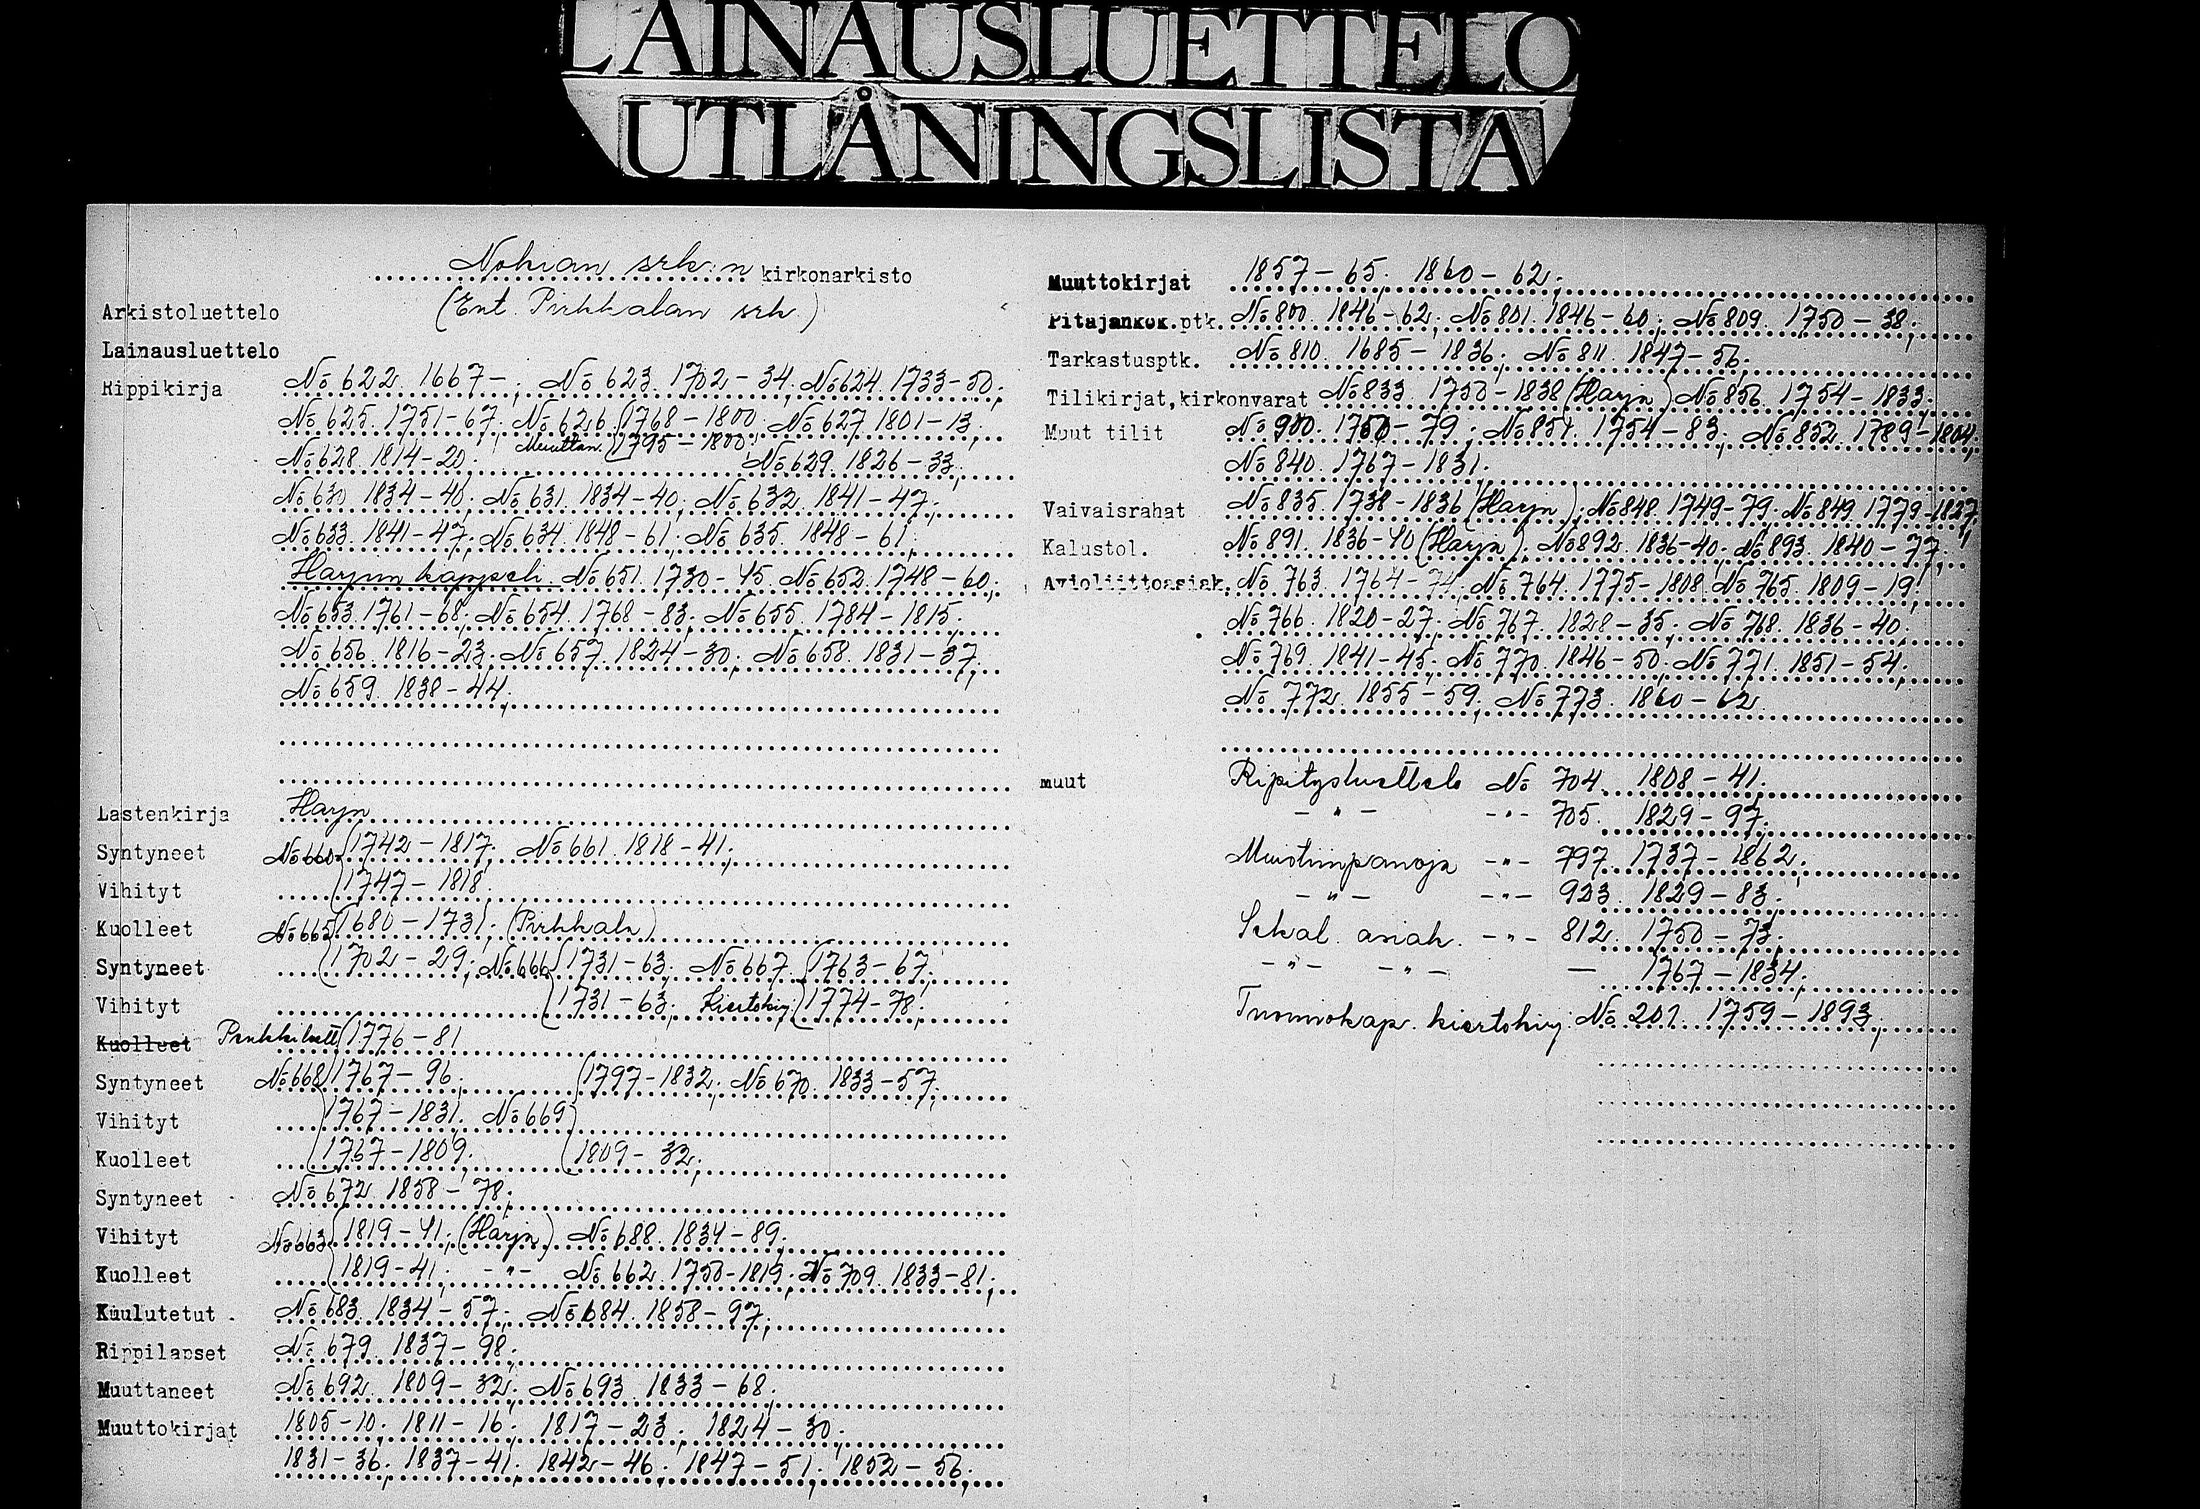 LAINAUSLUETTELO
UTLÅNINGSLISTA
Nokian srk:n kirkonarkisto
Arkistoluettelo (Ent. Pirkkalan srk.)
Lainausluettelo
Rippikirja No 622. 1667-; No 623. 1702-34; No 624. 1733-50;
No 625. 1751-67; No 626. (1768-1800; No 627. 1801-13;
No 628. 1814-20; Muuttan. (1795-1800; No 629. 1826-33;
No 630. 1834-40; No 631. 1834-40; No 632. 1841-47;
No 633. 1841-47; No 634. 1848-61; No 635. 1848-61;
Harjun kappeli. No 651. 1730-45. No 652. 1748-60;
No 653. 1761-68; No 654. 1768-83; No 655. 1784-1815;
No 656. 1816-23; No 657. 1824-30; No 658. 1831-37;
No 659. 1838-44;
Lastenkirja Harjn
Syntyneet No 660 (1742-1817; No 661. 1818-41;
Vihityt (1747-1818;
Kuolleet No 665 (1680-1731; (Pirkkala)
Syntyneet (1702-29; No 666 (1731-63; No 667. (1763-67;
Vihityt (1731-63; Kiertokirj. (1774-78;
Kuolleet (1776-81
Syntyneet No 668 (1767-96; (1797-1832; No 670. 1833-57;
Vihityt 1767-1831; No 669
Kuolleet (1767-1809; (1809-32;
Syntyneet No 672. 1858-78;
Vihityt No 663 (1819-41; (Harju) No 688. 1834-89;
Kuolleet (1819-41; -"- No 662. 1750-1819; No 709. 1833-81;
Kuulutetut No 683. 1834-57; No 684. 1858-97;
Rippilapset No 679. 1837-98;
Muuttaneet No 692. 1809-32; No 693. 1833-68;
Muuttokirjat 1805-10; 1811-16; 1817-23; 1824-30;
1831-36; 1837-41; 1842-46; 1847-51; 1852-56;
Muuttokirjat 1857-65; 1860-62;
Pitäjänkok.ptk. No 800. 1846-62; No 801. 1846-60; No 809. 1750-38;
Tarkastusptk. No 810. 1685-1836; No 811. 1847-56;
Tilikirjat, kirkonvarat No 833. 1750-1838 (Harju) No 856. 1754-1833;
Muut tilit No 900. 1750-79; No 851. 1754-83; No 852. 1789-1804;
No 840. 1767-1831;
Vaivaisrahat No 835. 1738-1836 (Harju); No 848. 1749-79; No 849. 1779-1827;
Kalustol. No 891. 1836-40 (Harju); No 892. 1836-40; No 893. 1840-77;
Avioliittoasiak. No 763. 1764-74; No 764. 1775-1808; No 765. 1809-19;
No 766. 1820-27; No 767. 1828-35; No 768. 1836-40;
No 769. 1841-45; No 770. 1846-50; No 771. 1851-54;
No 772. 1855-59; No 773. 1860-62
muut Ripitysluettelo No 704. 1808-41;
-"- -"- 705. 1829-97;
Muistiinpanoja -"- 797. 1737-1862;
-"- -"- 923. 1829-83;
Sekal. asiak. -"- 812. 1750-73;
-"- -"- — 1767-1834;
Tuomiokap. kiertokirj. No 201. 1759-1893;